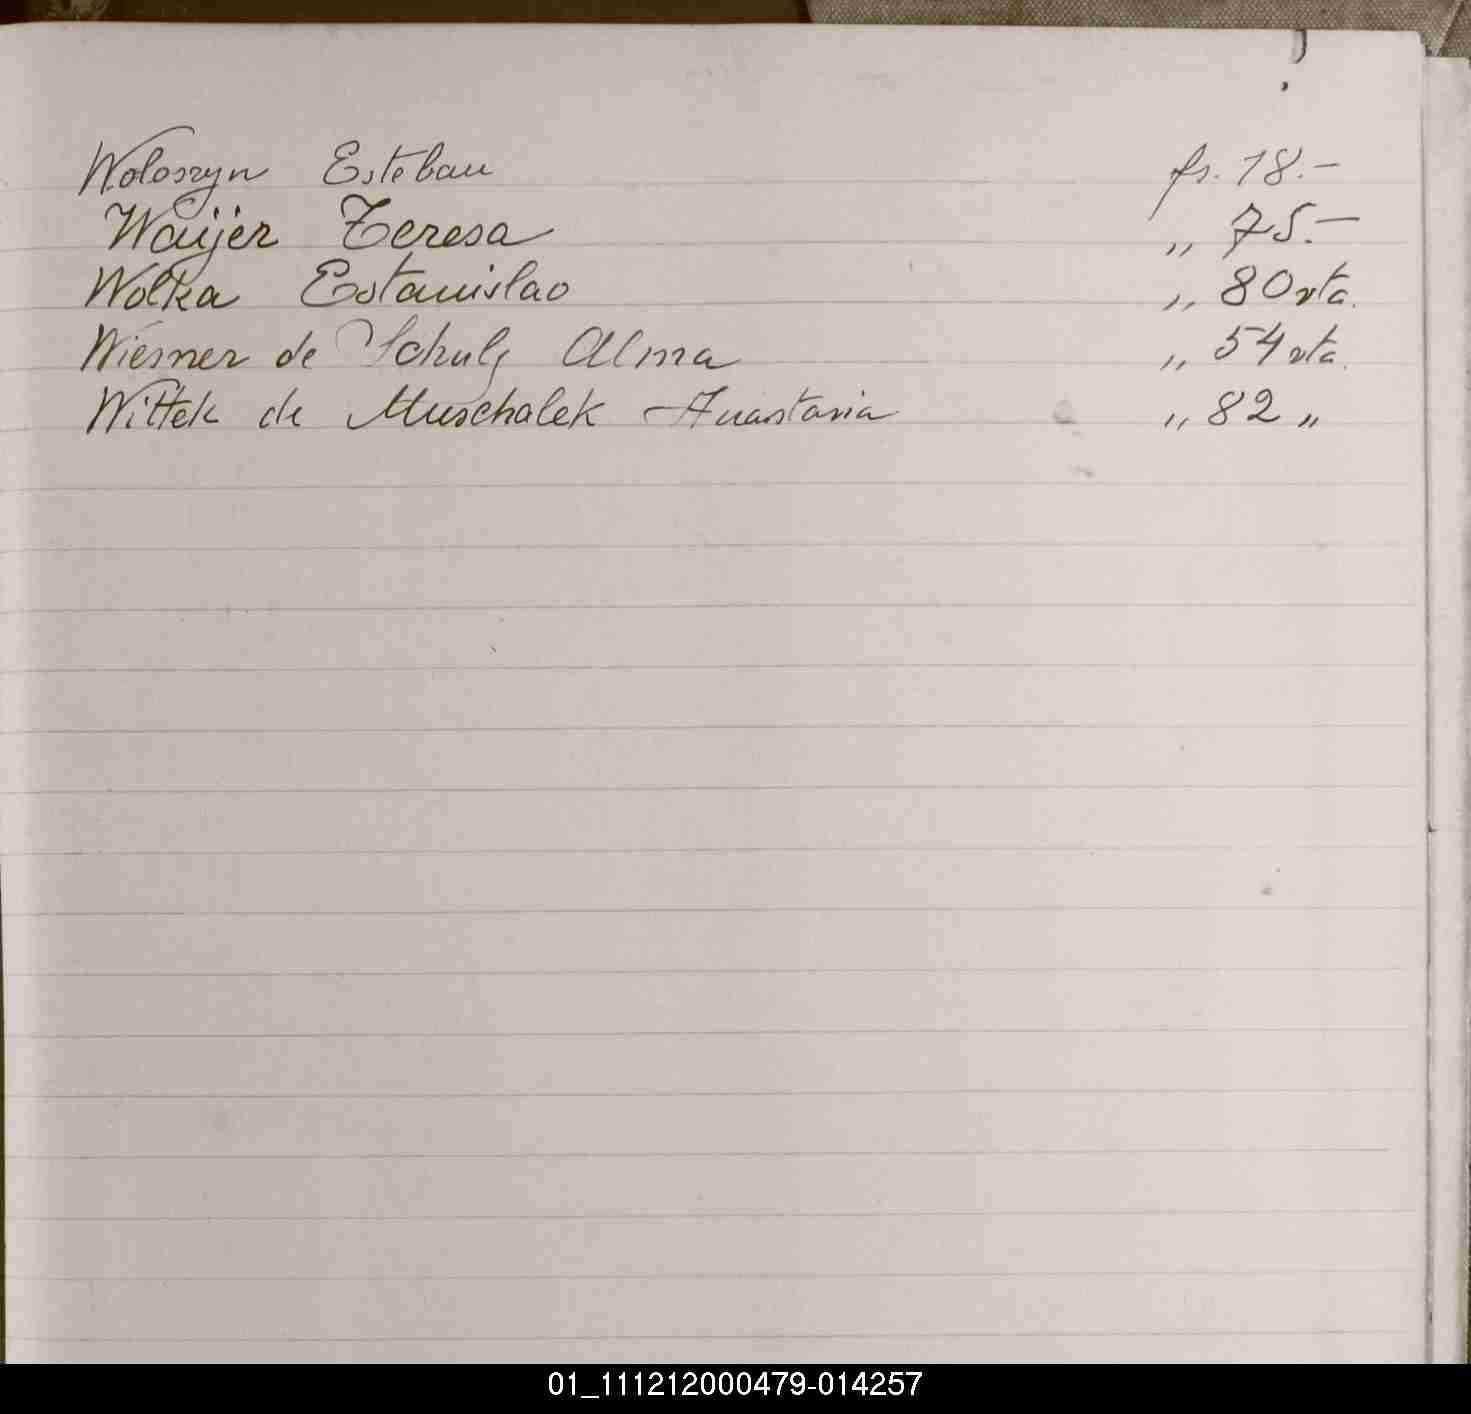 Woloszyn Esteban fs. 18.-
Waijer Teresa „ 75.-
Wolka Estanislao „ 80 vta.
Wiesner de Schulz Alma „ 54 vta.
Wittek de Muschalek Anastasia „ 82 „
01_111212000479-014257